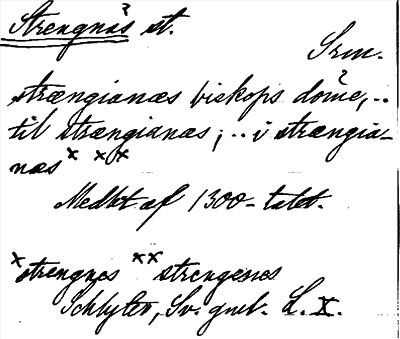 Strengnäs st.
Srm.
strængianæs biskops dome, ..
til strængianæs; .. i strængia-
næs x x x
Medltl af 1300-talet.
x strengnes xx strengenes
Schlyter, Sv. gml. L. X.